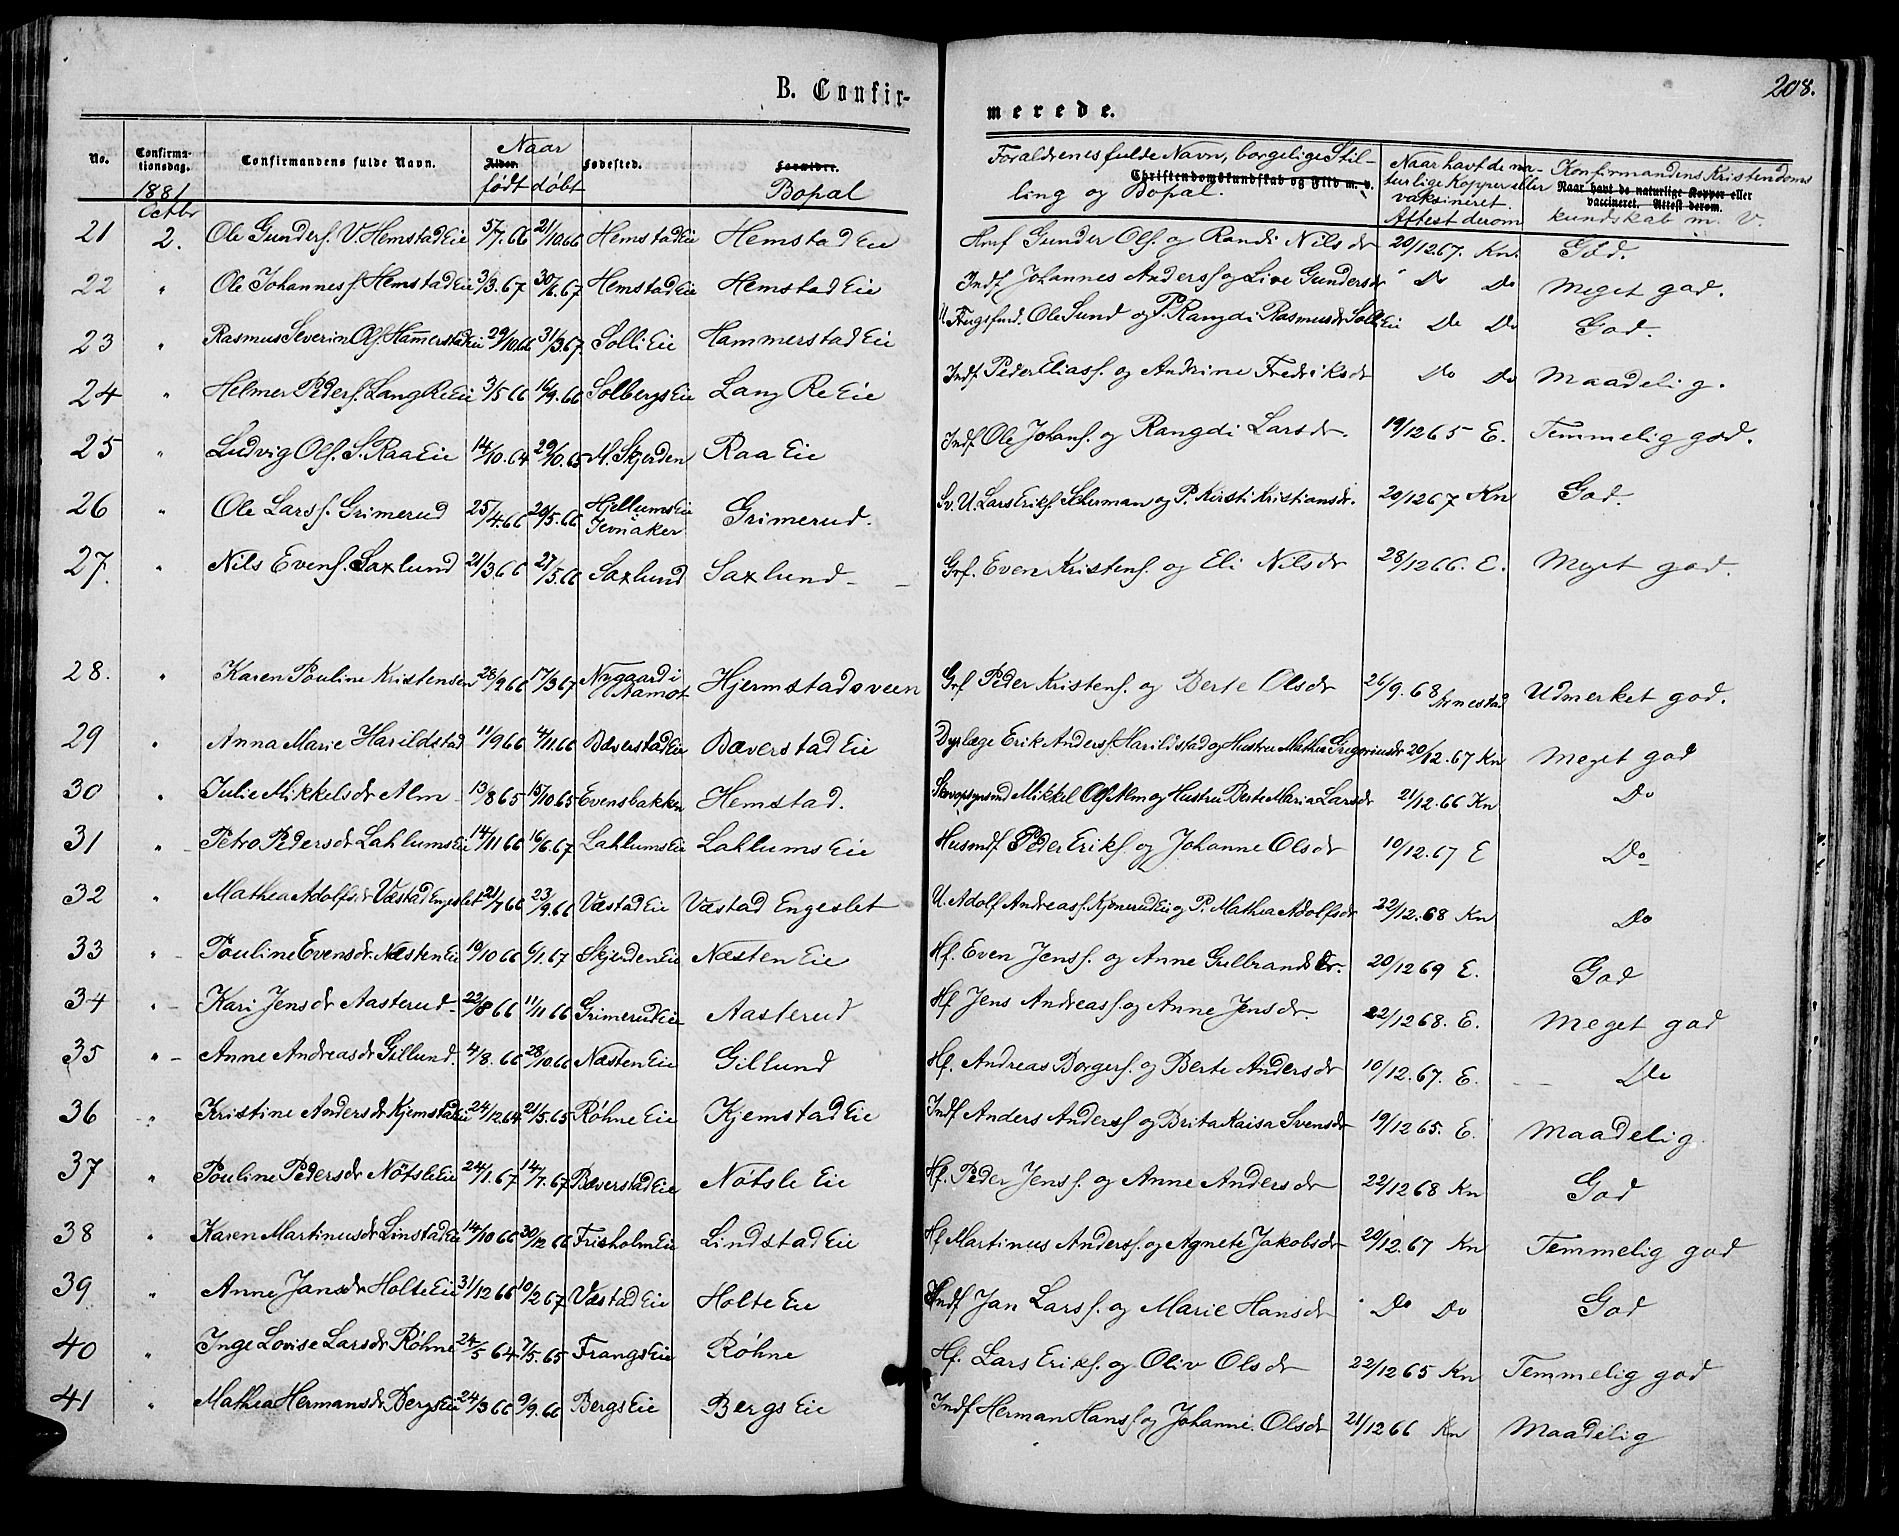 B. Confir-
merede.
208.
No. Confirma-tionsdag. Confirmandens fulde Navn. Naar Alder. født døbt Fødested. Forældre. Bopal
Foraldrenes fulde Navn, borgelige Stil-
Christendomskundskab og Flid m. v.
ling og Bopal.
Naar havt de na-
turlige Kopper eller
vaksineret.
Attest derom
Konfirmandens Kristendoms
Naar havt de naturlige Kopper eller
vaccineret. Attest derom.
kundskab m. V.
1881
Octbr
21 2. Ole Gunders. V. Hemstad Eie 5/7.66 21/10.66 Hemstad Eie Hemstad Eie Hmf Gunder Ols. og Randi Nilsdr 20/12 67. Kn. God.
22 " Ole Johannes s. Hemstad Eie 3/3.67 30/6.67 Hemstad Eie Hemstad Eie Indf Johannes Anders s og Live Gundersdr " Do Do Meget god.
23 " Rasmus Severin Ols. Hammerstad Eie 29/10.66 31/3.67 Solli Eie Hammerstad Eie Ole Sund og P. Rangdi Rasmusdr Solli Eie Do Do God.
24 " Helmer Peders. Lang Re Eie 3/5 66 16/9.66 Solbergs Eie Lang Re Eie Indf Peder Elias s. og Andrine Fredriksdr Do Do Maadelig.
25 " Ludvig Ols. S. Raa Eie 14/10.64 29/10.65 N. Skjerden Raa Eie Indf Ole Johans. og Rangdi Larsdr. 19/12 65 E. Temmelig god.
26 " Ole Lars s. Grimerud 25/4.66 29/5.66 Hjellums Eie Jevnaker Grimerud. Sv. U. Lars Eriks. Seterman og P. Kirsti Kristiansdr. 20/12 67 Kn God.
27. " Nils Evens. Saxlund 21/3 66 27/5.66 Saxlund Saxlund Grf. Even Kristens. og Eli Nilsdr 28/12 66. E. Meget god.
28. " Karen Pouline Kristensen 28/9 66 17/3 67 Nygaard i Aamot Hjermstadsveen Grf Peder Kristens. og Berte Olsdr 26/9.68 Arnestad Udmerket god.
29 " Anna Marie Harildstad 11/9 66 4/11.66 Bæverstad Eie Bæverstad Eie Dyrlæge Erik Anders s. Harildstad og Hustru Mathia Gregoriusdr 20/12.67 Kn Meget god
30 " Julie Mikkelsdr Alm 13/8 65 15/10 65 Evensbakken Hemstad. Mikkel Ols Alm og Hustru Berte Maria Larsdr 21/12.66 Kn Do
31 " Petra Pedersdr Lahlums Eie 14/11 66 16/6.67 Lahlums Eie Lahlums Eie Husmf Peder Eriks og Johanne Olsdr 10/12.67 E Do
32 " Mathea Adolfsdr Væstad Engeslet 21/7 66 23/9.66 Væstad Eie Væstad Engeslet U. Adolf Andreas s. Kjonerud Eie og P. Mathea Adolfsdr 22/12.68 Kn Do
33 " Pouline Evensdr. Næsten Eie 19/10 66 6/1.67 Skjerden Eie Næsten Eie Hf. Even Jens s. og Anne Gulbrandsdr. 20/12 69 E. God
34 " Kari Jensdr Aasterud 22/8 66 11/11 66 Grimerud Eie Aasterud Hf Jens Andreas s. og Anne Jensdr. 22/12 68. E. Meget god
35 " Anne Andreasdr Gillund. 4/8. 66 28/10.66 Næsten Eie Gillund Hf. Andreas Borgers. og Berte Andersdr 10/12.67. E. Do
36 " Kristine Andersdr Kjemstad Eie 24/12.64 21/5.65 Røhne Eie Kjemstad Eie Indf Anders Anders s og Brita Kaisa Svensdr 19/12 65. E. Maadelig
37 " Pouline Pedersdr Nøtsle Eie 24/1.67 14/7.67 Bæverstad Eie Nøtsle Eie Hf. Peder Jens s. og Anne Andersdr 22/12 68 Kn God
38 " Karen Martinusdr Linstad Eie 14/10 66 30/12 66 Frisholm Eie Lindstad Eie Hf Martinus Anders s. og Agnete Jakobsdr 20/12.67 Kn Temmelig god
39 " Anne Jansdr Holte Eie 31/12 66 10/2 67 Væstad Eie Holte Eie Indf Jan Lars s. og Marie Hansdr " Do Do God
40 " Inge Lovise Larsdr Røhne 24/5 64 7/5.65 Frangs Eie Røhne Hf. Lars Eriks. og Oliv Olsdr 22/12 65 Kn Temmelig god
41 " Mathea Hermansdr Bergs Eie 24/3 66 9/9.66 Bergs Eie Bergs Eie Indf Herman Hans s og Johanne Olsdr 21/12 66 Kn Maadelig